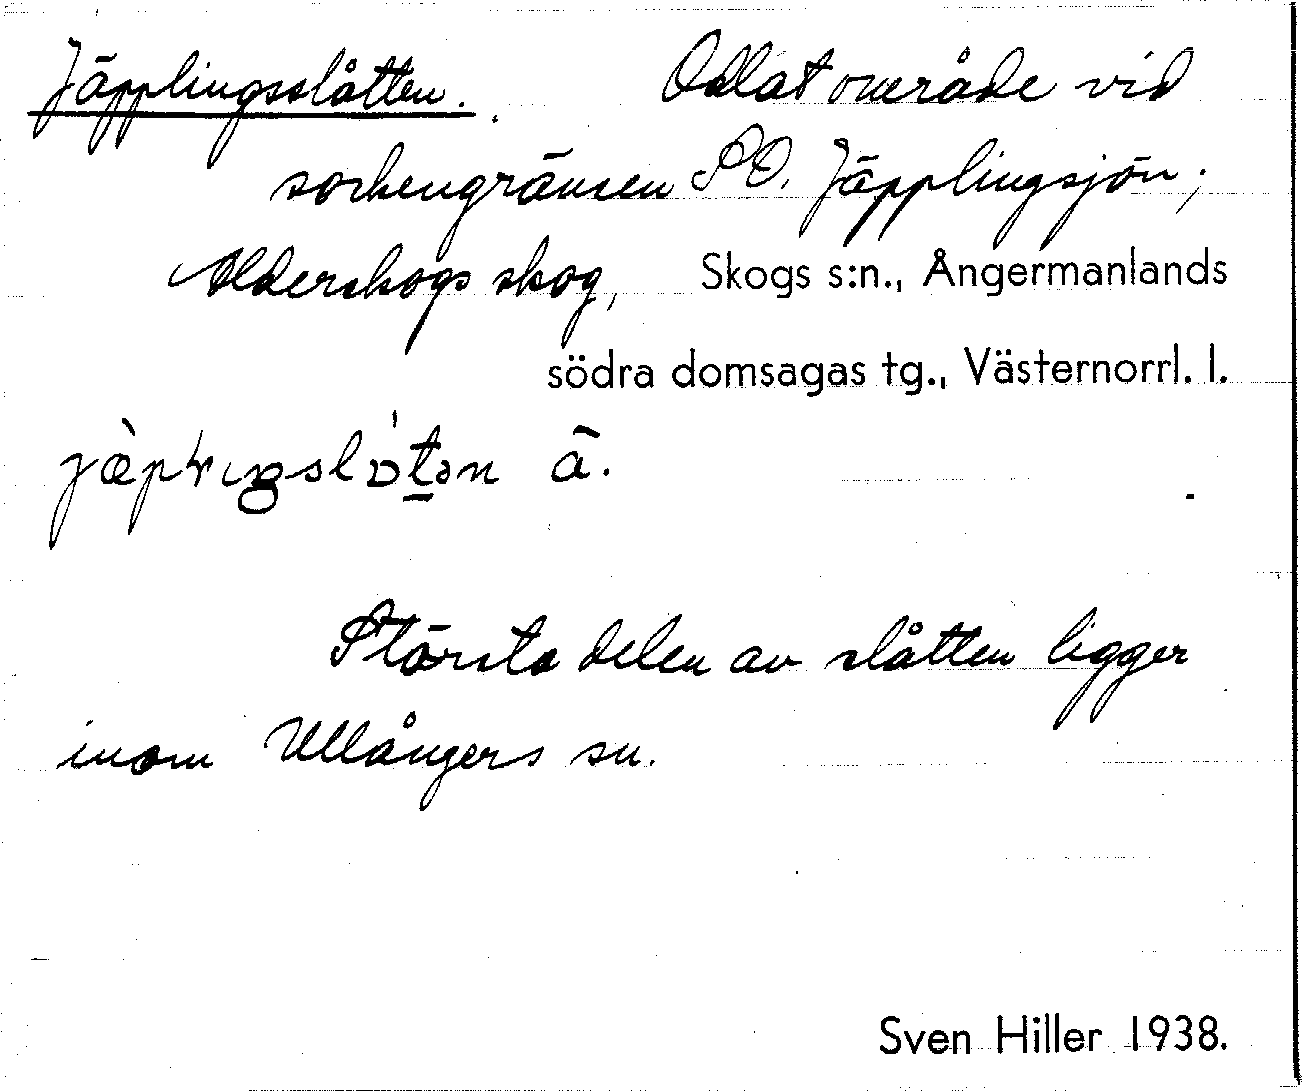 Jäpplingsslåtten. Odlat område vid
sockengränsen SO. Jäpplingsjön;
Älderskogs skog, Skogs s:n., Ångermanlands
södra domsagas tg., Västernorrl. l.
ā.
Största delen av slåtten ligger
inom Ullångers sn.
Sven Hiller 1938.